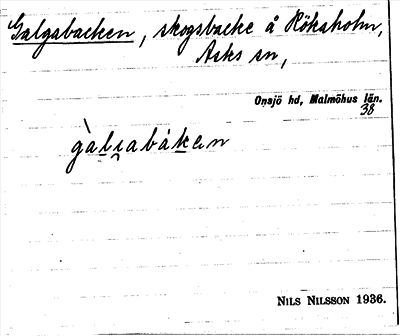 Galgabacken, skogsbacke å Röksholm,
Asks sn,
Onsjö hd, Malmöhus län.
38
gàli̯abáken
NILS NILSSON 1936.